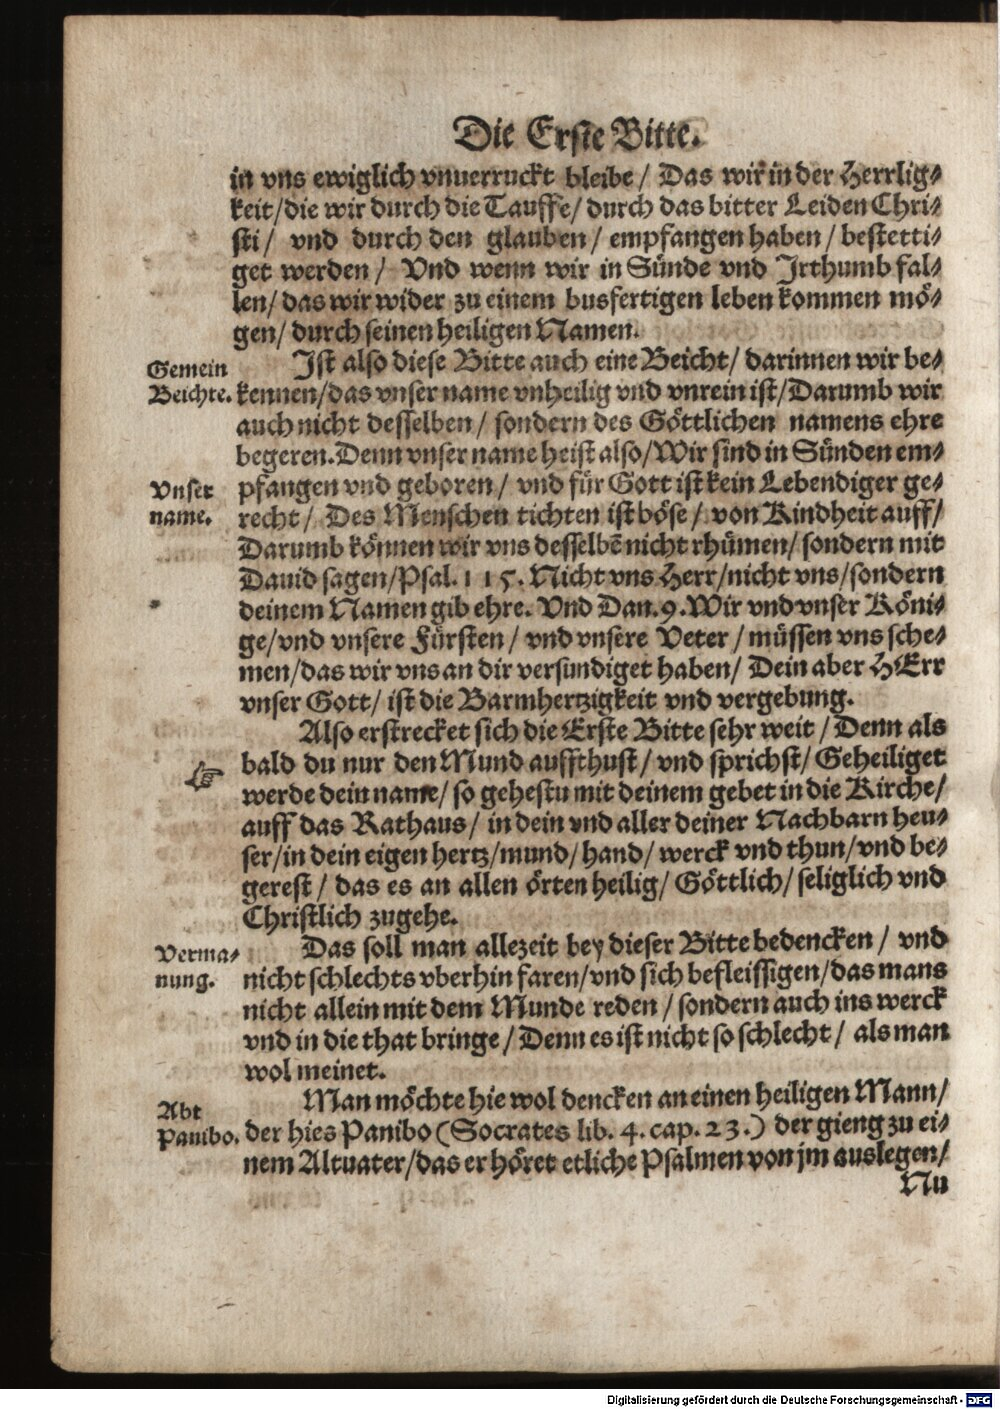 Die Erste Bitte.
in vns ewiglich vnuerruckt bleibe / Das wir in der Herrlig-
keit / die wir durch die Tauffe / durch das bitter Leiden Chri-
sti / vnd durch den glauben / empfangen haben / bestetti-
get werden / Vnd wenn wir in Sünde vnd Irthumb fal-
len / das wir wider zu einem busfertigen leben kommen mö-
gen / durch seinen heiligen Namen.
Gemein
Beichte.
Ist also diese Bitte auch eine Beicht / darinnen wir be-
kennen / das vnser name vnheilig vnd vnrein ist / Darumb wir
auch nicht desselben / sondern des Göttlichen namens ehre
begeren. Denn vnser name heist also / Wir sind in Sünden em-
Vnser
name.
pfangen vnd geboren / vnd für Gott ist kein Lebendiger ge-
recht / Des Menschen tichten ist böse / von Kindheit auff /
Darumb können wir vns desselbē nicht rhümen / sondern mit
Dauid sagen / Psal. 115. Nicht vns Herr / nicht vns / sondern
deinem Namen gib ehre. Vnd Dan. 9. Wir vnd vnser Köni-
ge / vnd vnsere Fürsten / vnd vnsere Veter / müssen vns sche-
men / das wir vns an dir versundiget haben / Dein aber HErr
vnser Gott / ist die Barmhertzigkeit vnd vergebung.
Also erstrecket sich die Erste Bitte sehr weit / Denn als
bald du nur den Mund auffthust / vnd sprichst / Geheiliget
werde dein name / so gehestu mit deinem gebet in die Kirche /
auff das Rathaus / in dein vnd aller deiner Nachbarn heu-
ser / in dein eigen hertz / mund / hand / werck vnd thun / vnd be-
gerest / das es an allen örten heilig / Göttlich / seliglich vnd
Christlich zugehe.
Verma-
nung.
Das soll man allezeit bey dieser Bitte bedencken / vnd
nicht schlechts vberhin faren / vnd sich befleissigen / das mans
nicht allein mit dem Munde reden / sondern auch ins werck
vnd in die that bringe / Denn es ist nicht so schlecht / als man
wol meinet.
Abt
Panibo.
Man möchte hie wol dencken an einen heiligen Mann /
der hies Panibo (Socrates lib. 4. cap. 23.) der gieng zu ei-
nem Altuater / das er höret etliche Psalmen von jm auslegen /
Nu
Digitalisierung gefördert durch die Deutsche Forschungsgemeinschaft - DFG